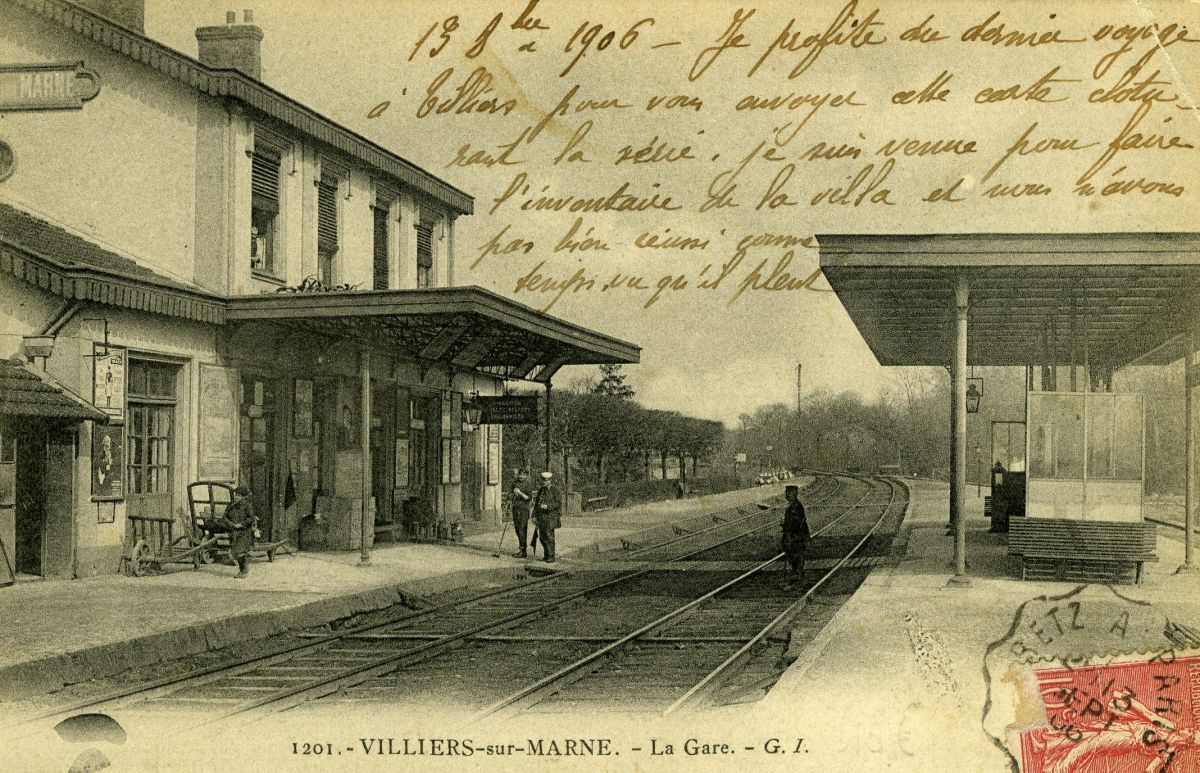 13 8bre 1906 - Je profite du dernier voyage
à Villiers pour vous envoyer cette carte clotu-
rant la série. je suis venue pour faire
l'inventaire de la villa et nous n'avons
pas bien réussi comme
temps, vu qu'il pleut
MARNE
1201. - VILLIERS-sur-MARNE. - La Gare. - G. I.
METZ A PARIS
13
SEPT
06